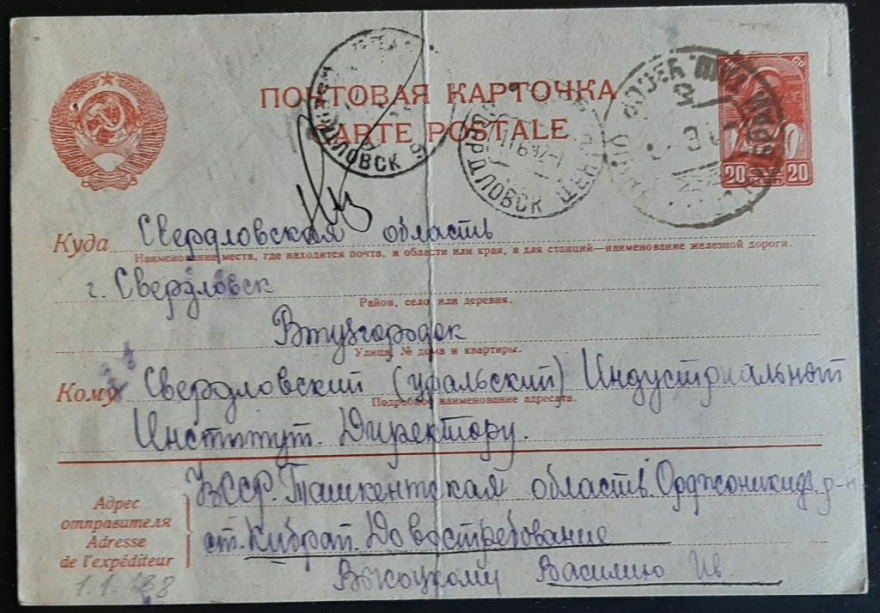 ПОЧТОВАЯ КАРТОЧКА
CARTE POSTALE
СВЕРДЛОВСК
СВЕРДЛОВСК
20 20
Куда Свердловская область
Наименование места, где находится почта, и области или края, а для станций—наименование железной дороги.
г. Свердловск
Район, село или деревня.
Втузгородок
Улица, № дома и квартиры.
Кому Свердловский (уральский) Индустриальный
Подробное наименование адресата.
Институт. Директору.
Адрес отправителя
Adresse de l'expéditeur
УзССР. Ташкентская область. Орджоникидз. р-н
ст. Кибрай. До востребование
Высоцкому Василию Ив.